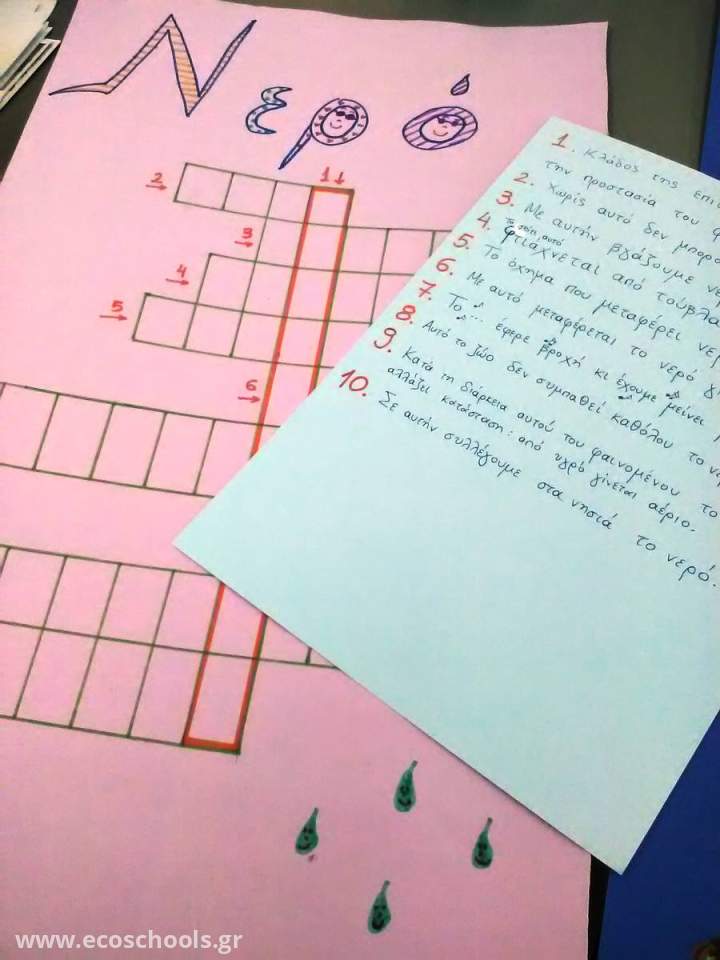 Νερό
1
2
3
4
5
6
1. Κλάδος της
την προστασία του
2. Χωρίς αυτό δεν
3. Με αυτήν βγάζουμε
4. Το σπίτι αυτό
φτιάχνεται από τούβλα
5. Το όχημα που μεταφέρει
6. Με αυτό μεταφέρεται το νερό
7. Το ... έφερε βροχή κι έχουμε μείνει
8. Αυτό το ζώο δεν συμπαθεί καθόλου το
9. Κατά τη διάρκεια αυτού του φαινομένου το
αλλάζει κατάσταση: από υγρό γίνεται αέριο.
10. Σε αυτήν συλλέγουμε στα νησιά το νερό.
www.ecoschools.gr